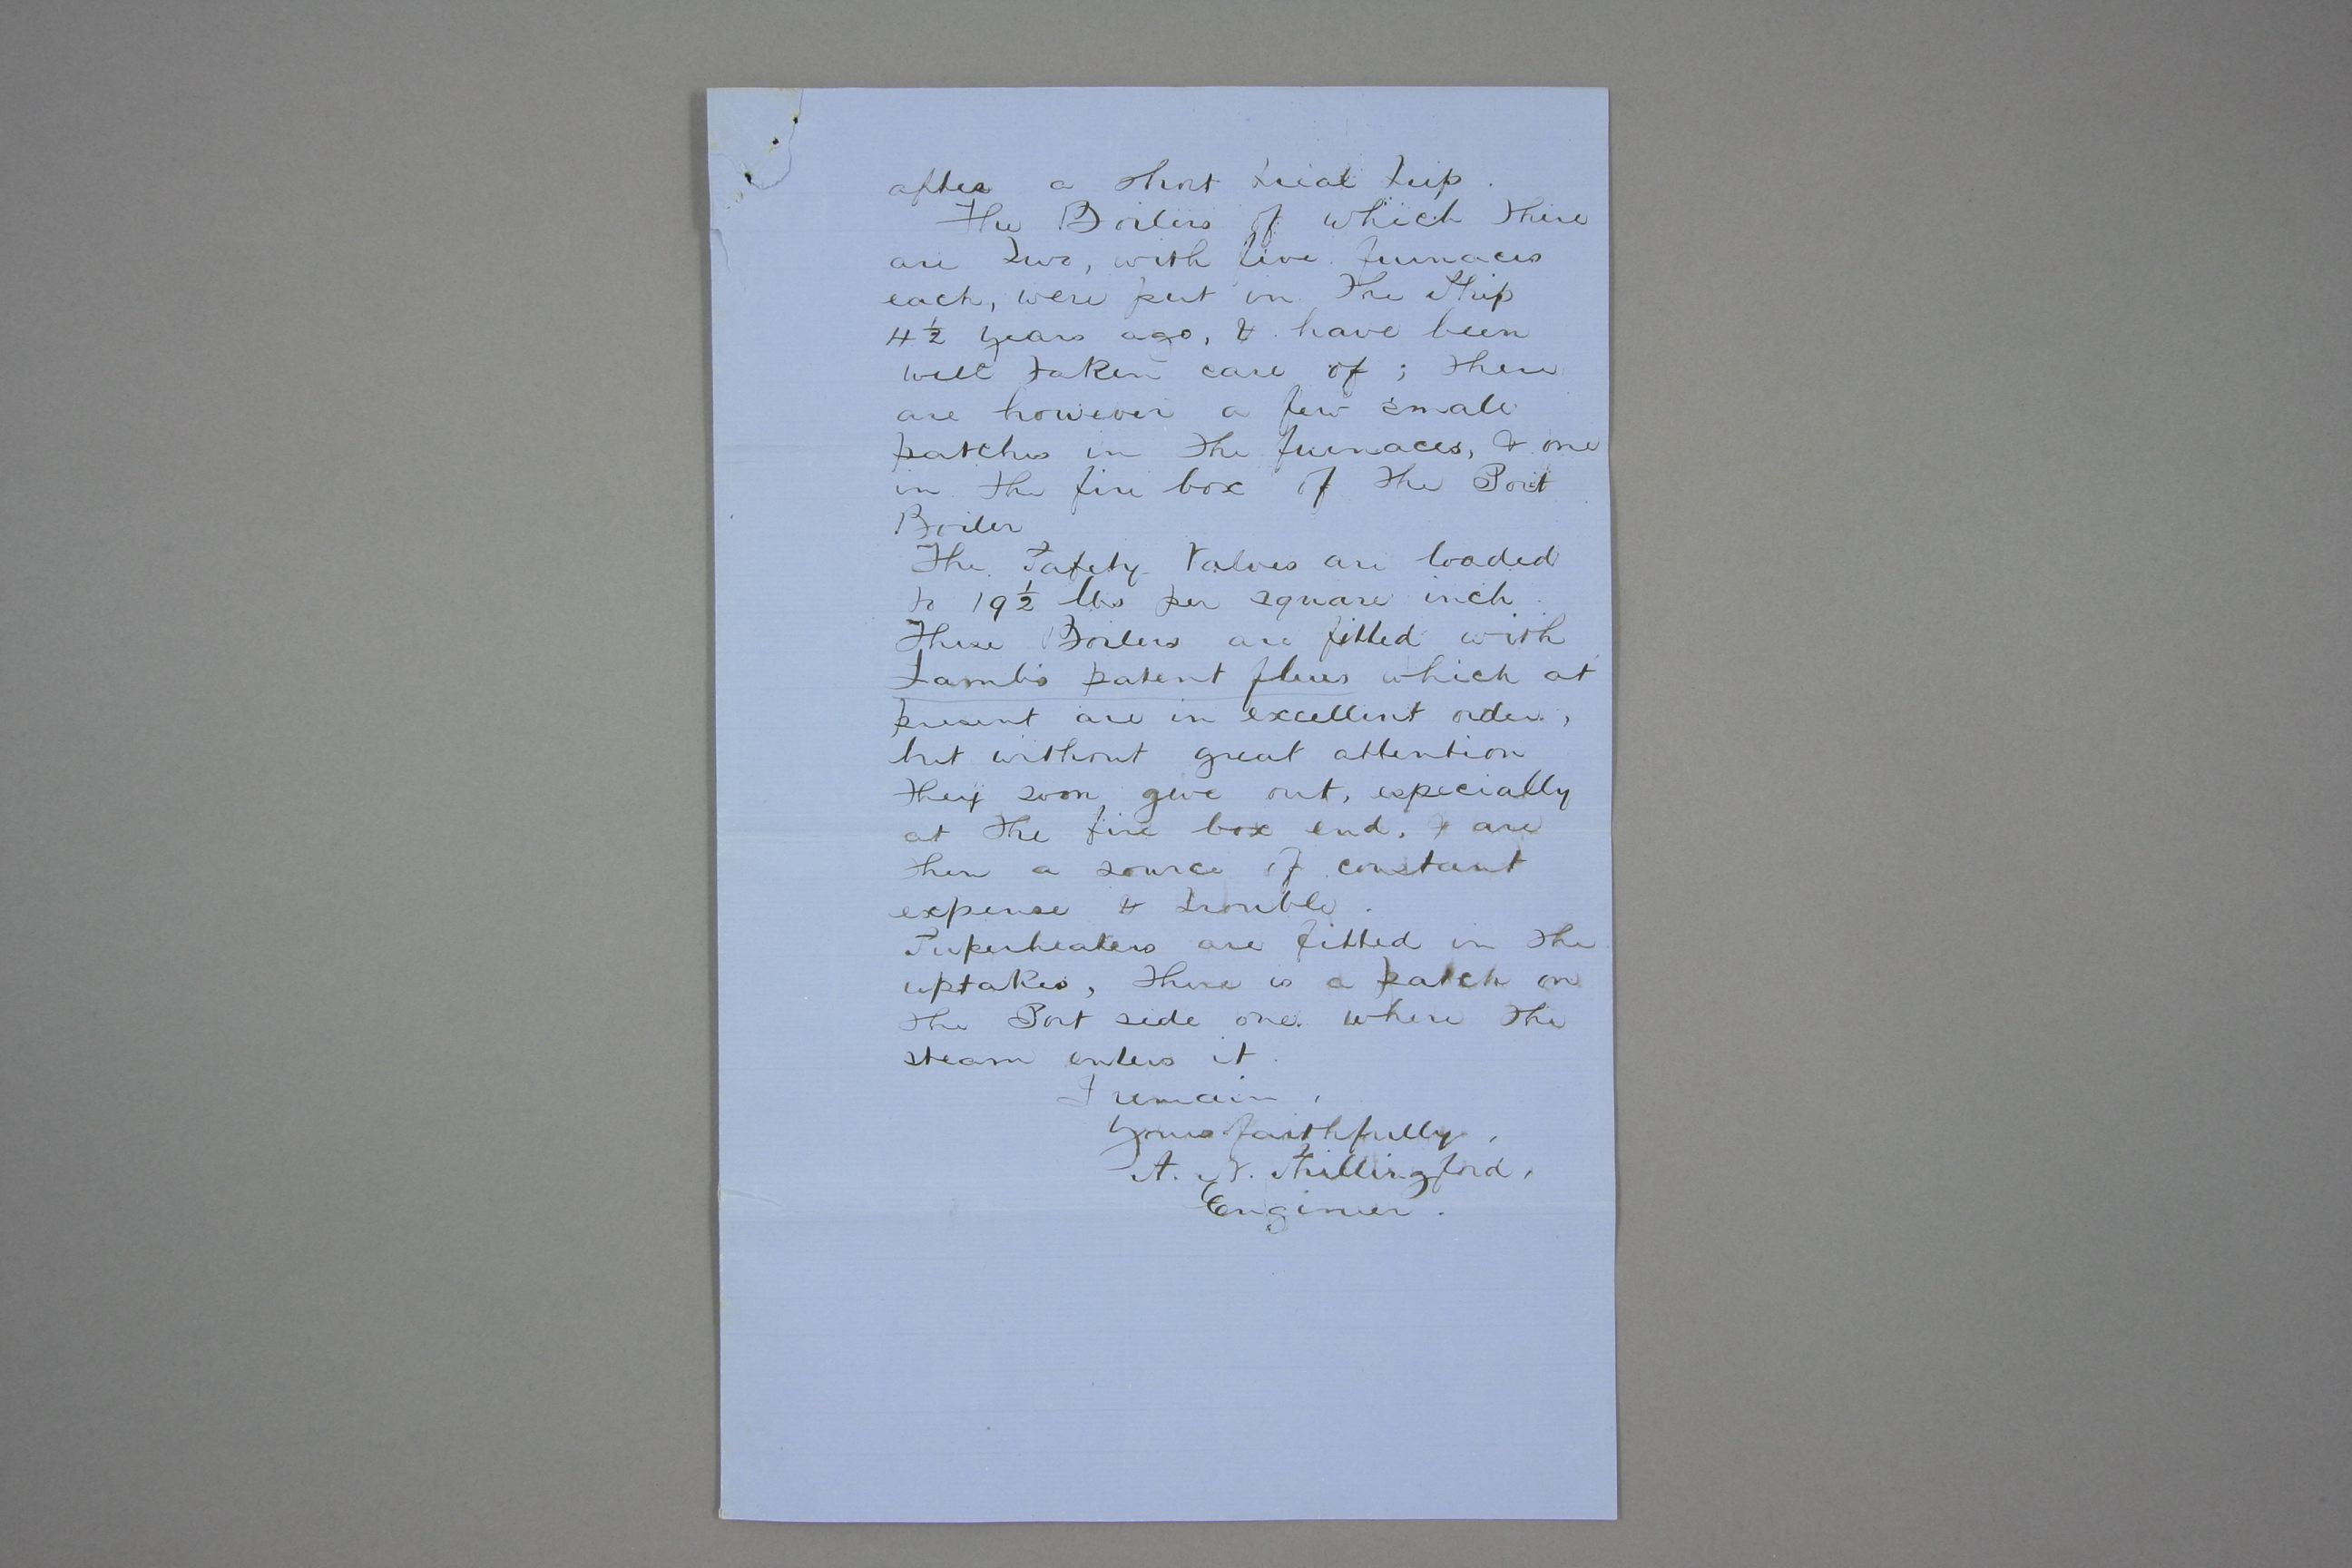 after a short trial trip.
The Boilers of which there
are two, with five furnaces
each, were put in the Ship
4½ years ago, & have been
well taken care of; there
are however a few small
patches in the furnaces, & one
in the fire box of the Port
Boiler
The Safety Valves are loaded
to 19½ lbs per square inch.
These Boilers are fitted with
Lamb's patent flues which at
present are in excellent order,
but without great attention
they soon give out, especially
at the fire box end, & are
then a source of constant
expense & trouble.
Superheaters are fitted in the
uptakes, there is a patch on
the Port side one where the
steam enters it.
I remain,
Yours faithfully,
A. Shillingford,
Engineer.